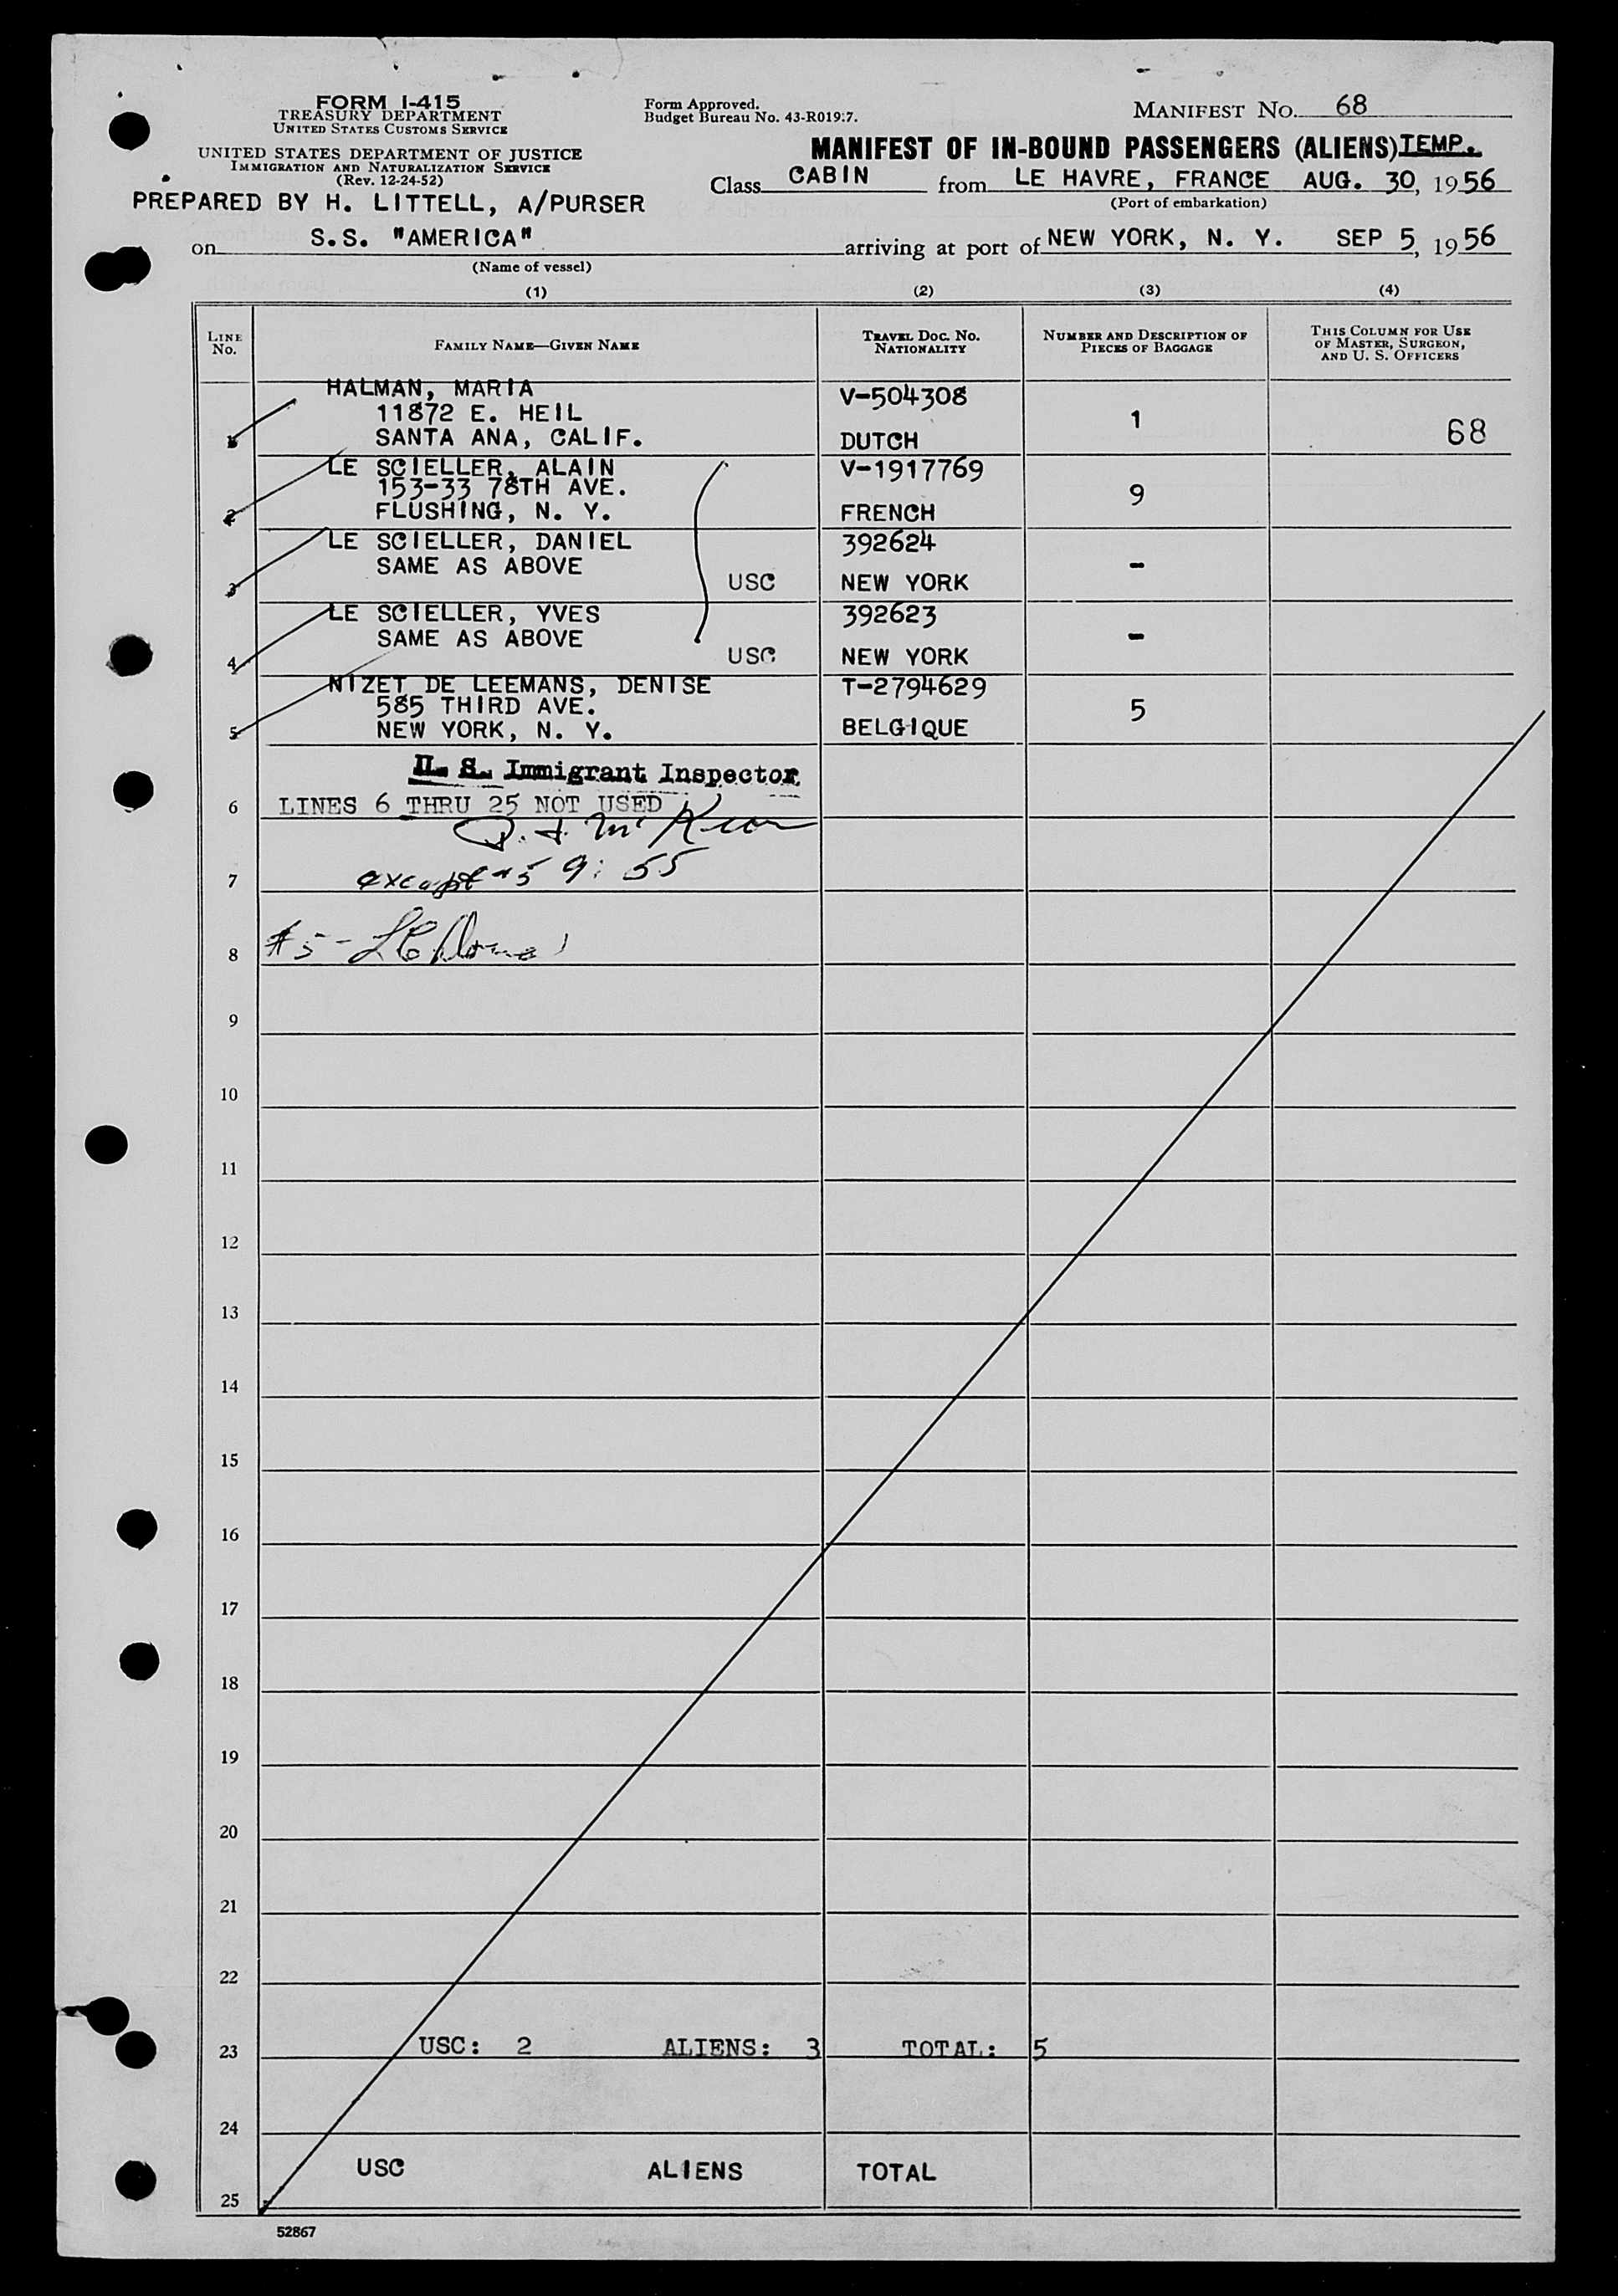 FORM I-415
TREASURY DEPARTMENT
UNITED STATES CUSTOMS SERVICE
UNITED STATES DEPARTMENT OF JUSTICE
IMMIGRATION AND NATURALIZATION SERVICE
(Rev. 12-24-52)
PREPARED BY H. LITTELL, A/PURSER
Form Approved.
Budget Bureau No. 43-R019.7.
MANIFEST NO. 68
MANIFEST OF IN-BOUND PASSENGERS (ALIENS) TEMP.
Class CABIN from LE HAVRE, FRANCE AUG. 30, 1956
(Port of embarkation)
on S.S. "AMERICA" arriving at port of NEW YORK, N. Y. SEP 5, 1956
(Name of vessel)
(1) (2) (3) (4)
LINE NO. FAMILY NAME—GIVEN NAME TRAVEL DOC. NO. NATIONALITY NUMBER AND DESCRIPTION OF PIECES OF BAGGAGE THIS COLUMN FOR USE OF MASTER, SURGEON, AND U. S. OFFICERS
HALMAN, MARIA V-504308
11872 E. HEIL 1
1 SANTA ANA, CALIF. DUTCH 68
LE SCIELLER, ALAIN V-1917769
153-33 78TH AVE. 9
2 FLUSHING, N. Y. FRENCH
LE SCIELLER, DANIEL 392624
SAME AS ABOVE -
3 USC NEW YORK
LE SCIELLER, YVES 392623
SAME AS ABOVE -
4 USC NEW YORK
NIZET DE LEEMANS, DENISE T-2794629
585 THIRD AVE. 5
5 NEW YORK, N. Y. BELGIQUE
U. S. Immigrant Inspector
6 LINES 6 THRU 25 NOT USED
7 except #5 9:55
8 #5 -
9
10
11
12
13
14
15
16
17
18
19
20
21
22
23 USC: 2 ALIENS: 3 TOTAL: 5
24
USC ALIENS TOTAL
25
52867